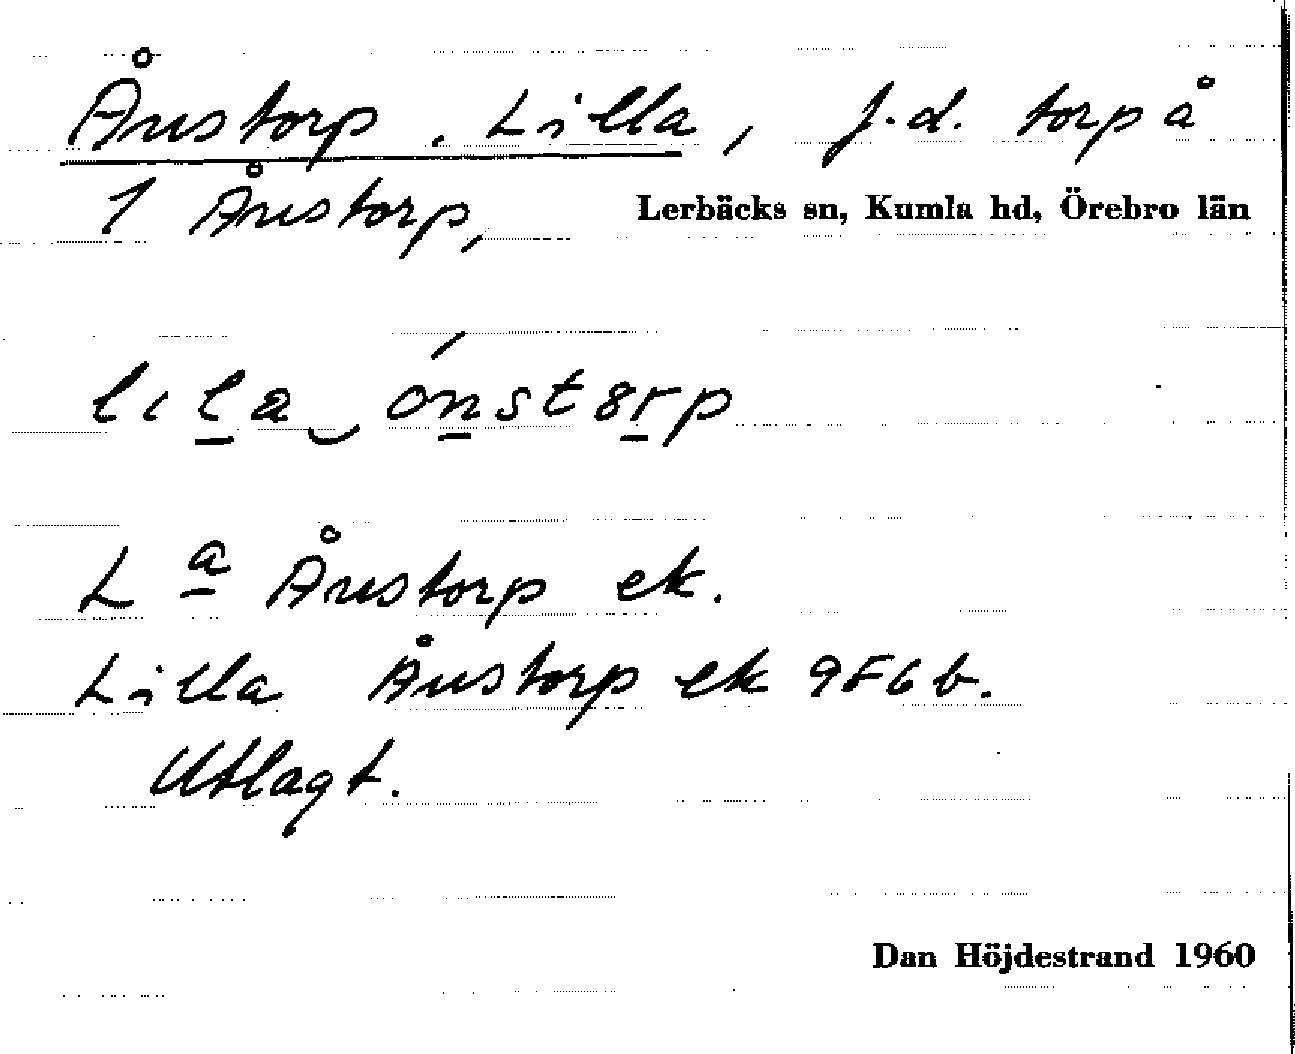 Ånstorp, Lilla, f.d. torp å
1 Ånstorp, Lerbäcks sn, Kumla hd, Örebro län
lila ónstorp
L a Ånstorp ek.
Lilla Ånstorp ek 9F6b.
Utlagt.
Dan Höjdestrand 1960